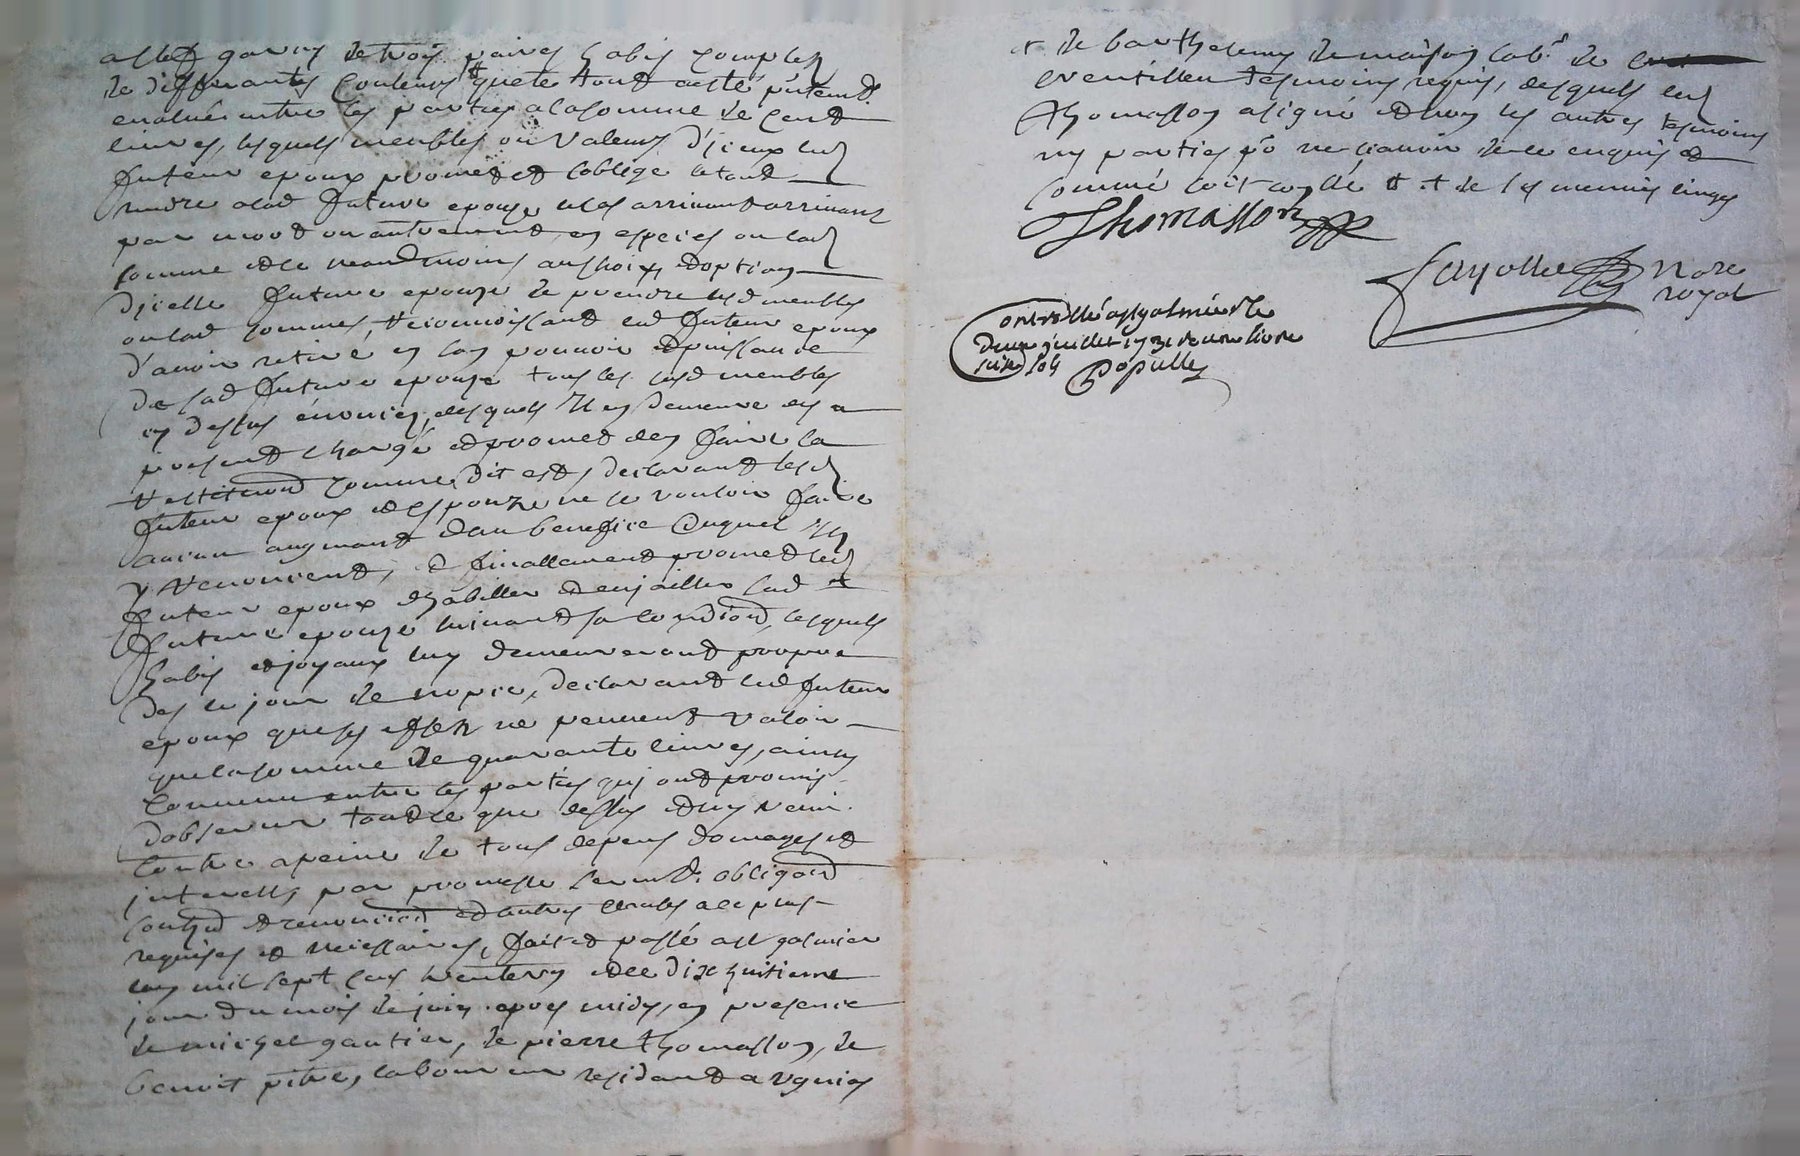 assez garnis de trois paires habis complex
de differantes couleurs & que le tout a esté présentemt
evalué entre les parties a la somme de cent
livres, lesquels meubles ou valeurs d'jceux led
futeur epoux promet et soblige le tout
rendre a lad future epouze le cas arrivant arrivant
par mort ou autrement, en especes ou lad
somme et ce neandmoins au choix et option
d'jcelle future epouze de prendre lesd meubles
ou lad somme, reconnoissant led futeur epoux
d'avoir retiré en son pouvoir et puissance
de lad future epouze tous les susd meubles
cy dessus énoncez, desquels il en demeure des a
present chargé et promet den faire la
restitution comme dit est, declarant lesd
futeur epoux et espouze ne se vouloir faire
aucun augmant dau benefice duquel ils
y renoncent, & finallement promet led
futeur epoux dhabiller et enjailler lad
future epouze suivant sa condition, lesquels
habis et joyaux luy demeureront propre
des le jour de nopce, declarant led futeur
epoux que ses effets ne peuvent valoir
que la somme de quarante livres, ainsy
convenu entre les parties qui ont promis
dobserver tout ce que dessus et ny venir
contre a peine de tous depens domages et
jnterests, par promesse serment, obligaon
soubmon et renonciaon et autres clauses a ce plus
requises et necessaires, fait et passé a st galmier
lan mil sept cens trente un et le dix huitieme
jour du mois de juin apres midy, en presence
de michel gautier, de pierre thomasson, de
benoit pitre, laboureur residant a
& de barthelemy de maison lab. de
tesmoins requis, desquels led
thomasson a signé et non les autres tesmoins
ny parties po ne scavoir de ce enquis et
sommé soit collé & & de les mennus linges
Thomasson
fayolle nore
royal
Controllé a st galmier le
deux juillet 1731 recu une livre
seize sols Populle